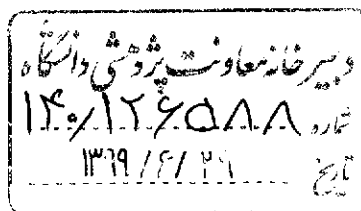 دبیرخانه معاونت پژوهشی دانشگاه
شماره ۱۴۰/۱۲۶۵۸۸
تاریخ ۱۳۹۹/۴/۲۹